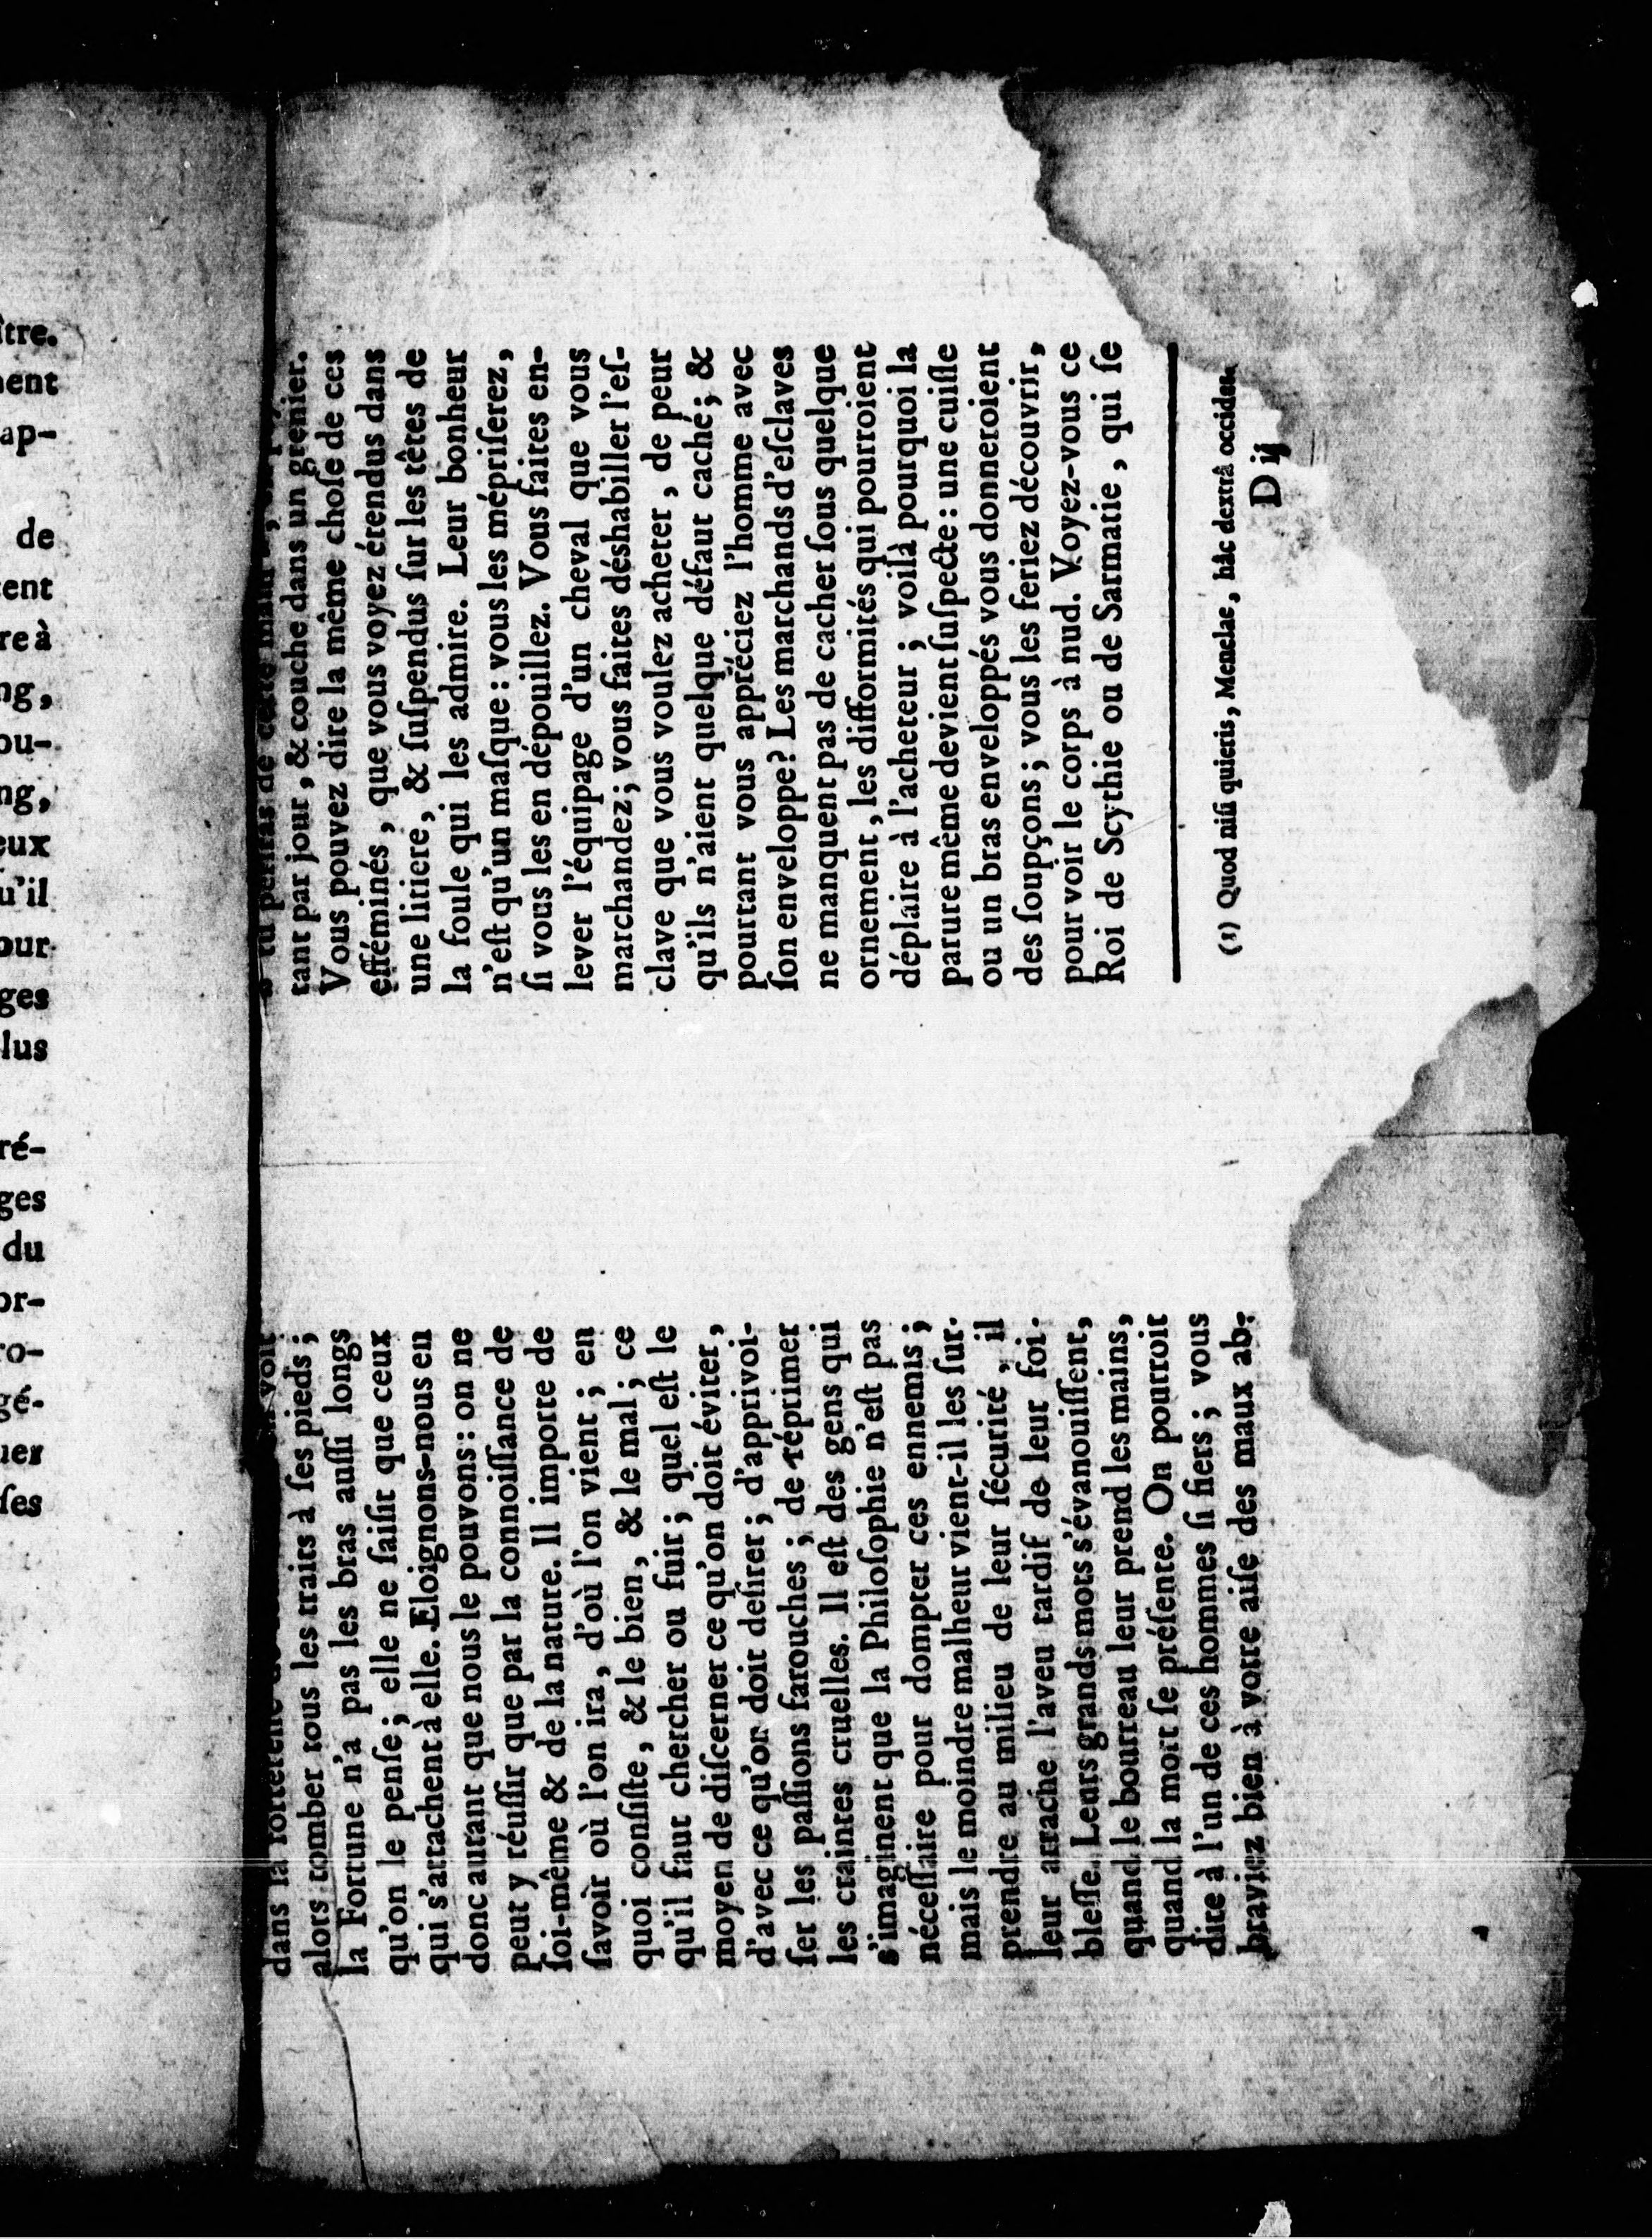 ître.
nent
ap-
de
tent
re à
ng,
ou-
ng,
eux
u'il
our
ges
lus
ré-
ges
du
or-
ro-
gé-
uer
ſes
dans la voit
alors tomber tous les traits à ſes pieds ;
la Fortune n'a pas les bras auſſi longs
qu'on le penſe ; elle ne ſaiſit que ceux
qui s'attachent à elle. Eloignons-nous en
donc autant que nous le pouvons : on ne
peut y réuſſir que par la connoiſſance de
ſoi-même & de la nature. Il importe de
ſavoir où l'on ira, d'où l'on vient ; en
quoi conſiſte, & le bien, & le mal ; ce
qu'il faut chercher ou fuir ; quel eſt le
moyen de diſcerner ce qu'on doit éviter,
d'avec ce qu'on doit deſirer ; d'apprivoi-
ſer les paſſions farouches ; de réprimer
les craintes cruelles. Il eſt des gens qui
s'imaginent que la Philoſophie n'eſt pas
néceſſaire pour dompter ces ennemis ;
mais le moindre malheur vient-il les ſur-
prendre au milieu de leur ſécurité, il
leur arrache l'aveu tardif de leur foi-
bleſſe. Leurs grands mots s'évanouiſſent,
quand le bourreau leur prend les mains,
quand la mort ſe préſente. On pourroit
dire à l'un de ces hommes ſi fiers ; vous
braviez bien à votre aiſe des maux ab-
tu de cette
tant par jour, & couche dans un grenier.
Vous pouvez dire la même choſe de ces
efféminés, que vous voyez étendus dans
une litiere, & ſuſpendus ſur les têtes de
la foule qui les admire. Leur bonheur
n'eſt qu'un maſque : vous les mépriſerez,
ſi vous les en dépouillez. Vous faites en-
lever l'équipage d'un cheval que vous
marchandez ; vous faites déshabiller l'eſ-
clave que vous voulez acheter, de peur
qu'ils n'aient quelque défaut caché ; &
pourtant vous appréciez l'homme avec
ſon enveloppe ? Les marchands d'eſclaves
ne manquent pas de cacher ſous quelque
ornement, les difformités qui pourroient
déplaire à l'acheteur ; voilà pourquoi la
parure même devient ſuſpecte : une cuiſſe
ou un bras enveloppés vous donneroient
des ſoupçons ; vous les feriez découvrir,
pour voir le corps à nud. Voyez-vous ce
Roi de Scythie ou de Sarmatie, qui ſe
(1) Quod niſi quieris, Menelae, hâc dextrâ occides.
D ij